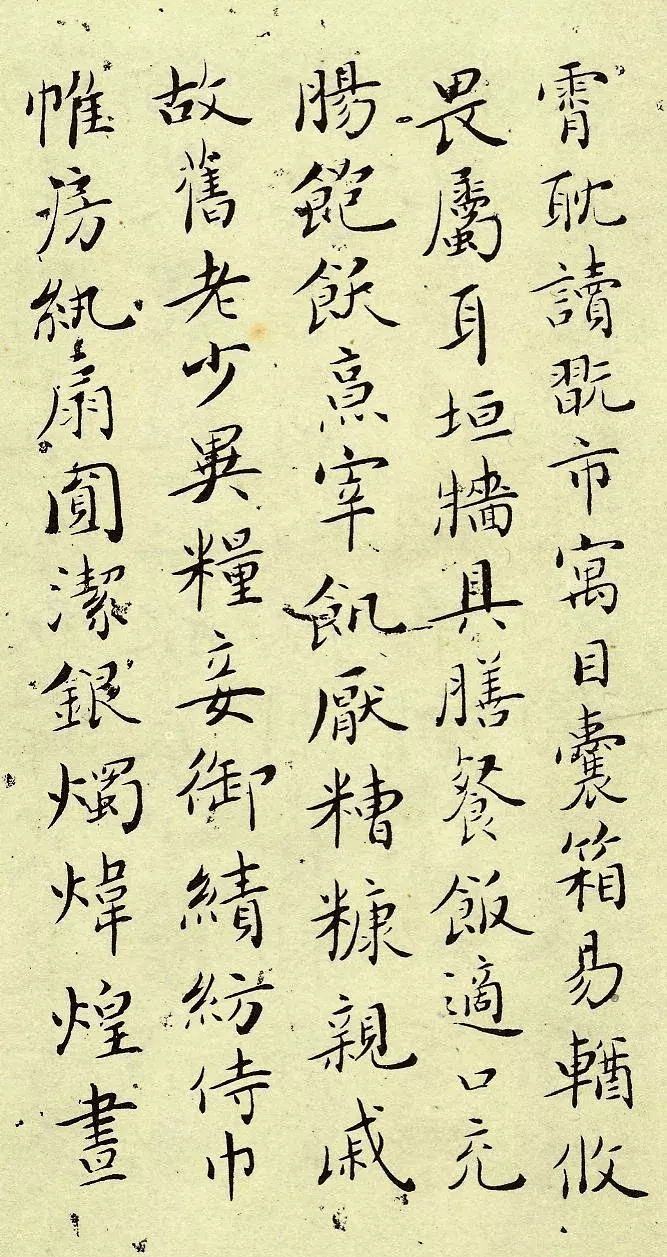 霄耽讀翫市寓目囊箱易輶攸
畏屬耳垣牆具膳飡飯適口充
腸飽飫烹宰飢厭糟糠親戚
故舊老少異糧妾御績紡侍巾
帷房紈扇圓潔銀燭煒煌晝